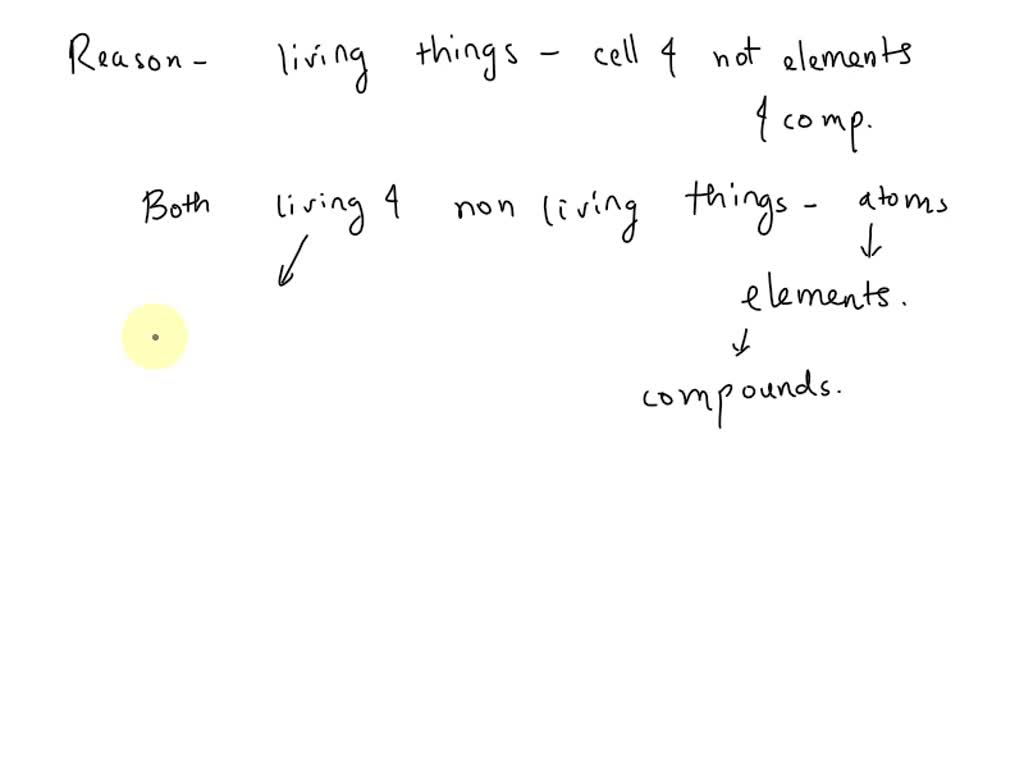 Reason - living things - cell & not elements
& comp.
Both living & non living things - atoms
↓
elements.
↓
compounds.